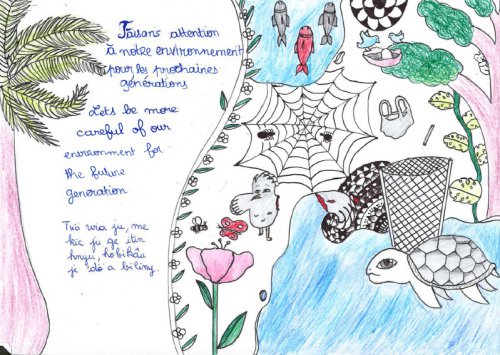 Faisons attention
à notre environnement
pour les prochaines
générations
Lets be more
careful of our
environment for
the future
generation
wia ju, me
kic ju ge
a